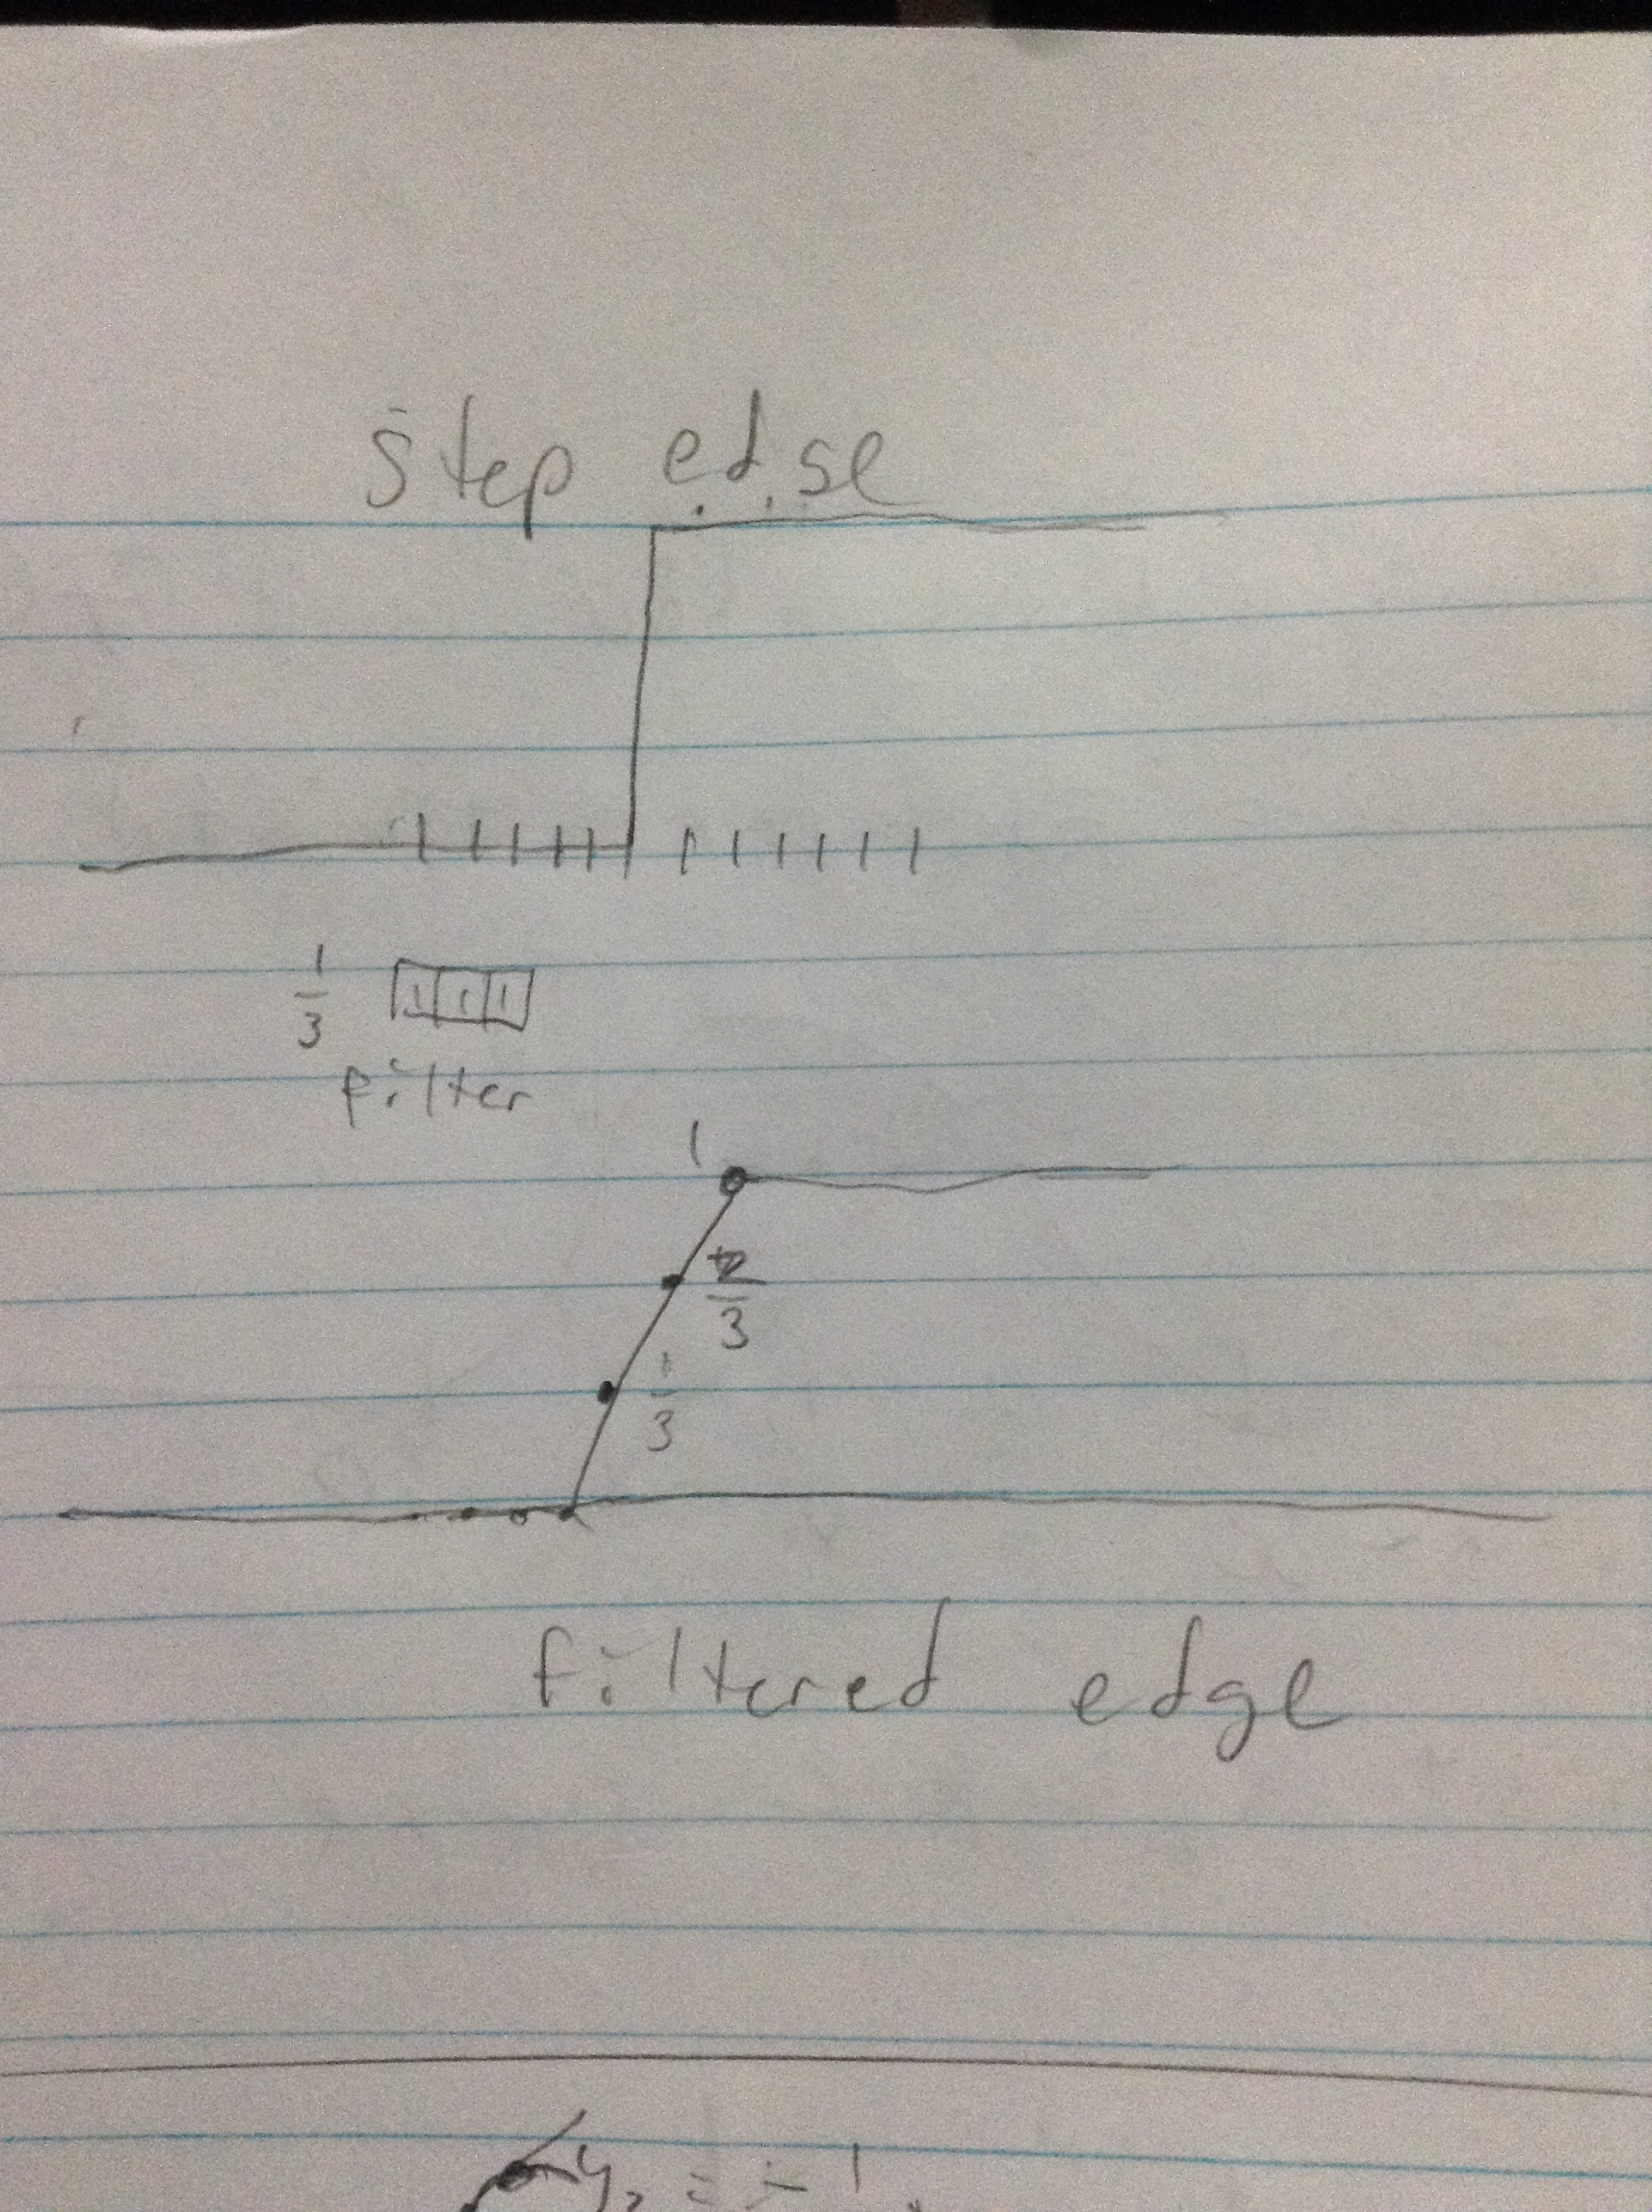 step edge
1
3
1 1 1
filter
1
2
3
1
3
filtered edge